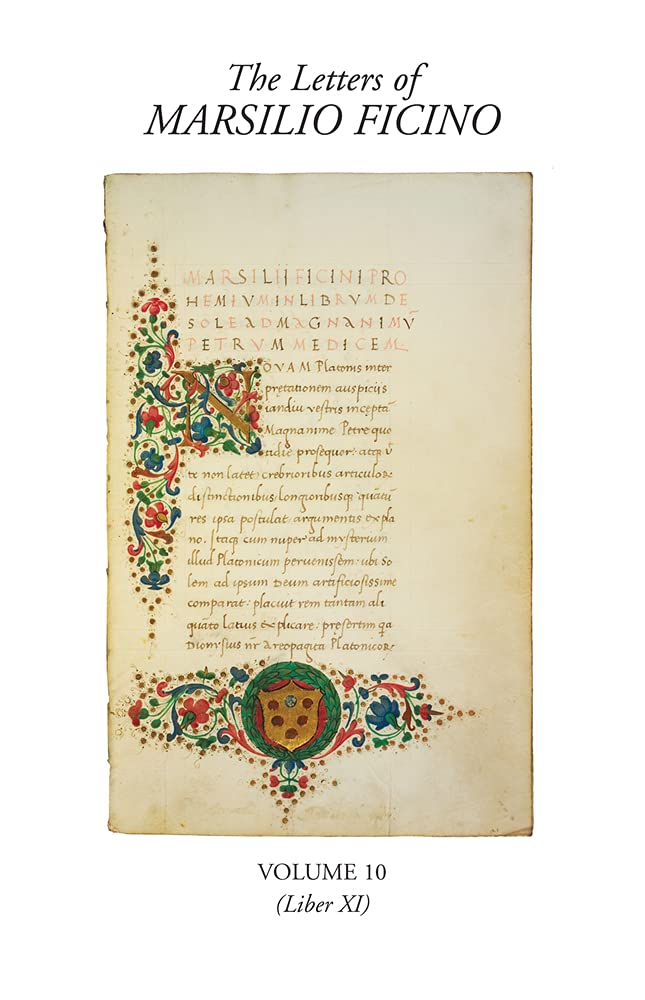 The Letters of
MARSILIO FICINO
MARSILII FICINI PRO
HEMIVM IN LIBRVM DE
SOLE AD MAGNANIMṼ
PETRVM MEDICEM
NOVAM Platonis inter
pretationem auspiciis
iandiu vestris inceptā
Magnanime Petre quo
tidie prosequor: atq; ū
te non latet crebrioribus articulor
distinctionibus: longioribusq; quātū
res ipsa postulat argumentis expla
no. Itaq; cum nuper ad mysterium
illud Platonicum pervenissem: ubi So
lem ad ipsum Deum artificiosissime
comparat: placuit rem tantam ali
quāto latius explicare: presertim qa
Dionysius nr̄ Areopagita Platonicor
VOLUME 10
(Liber XI)